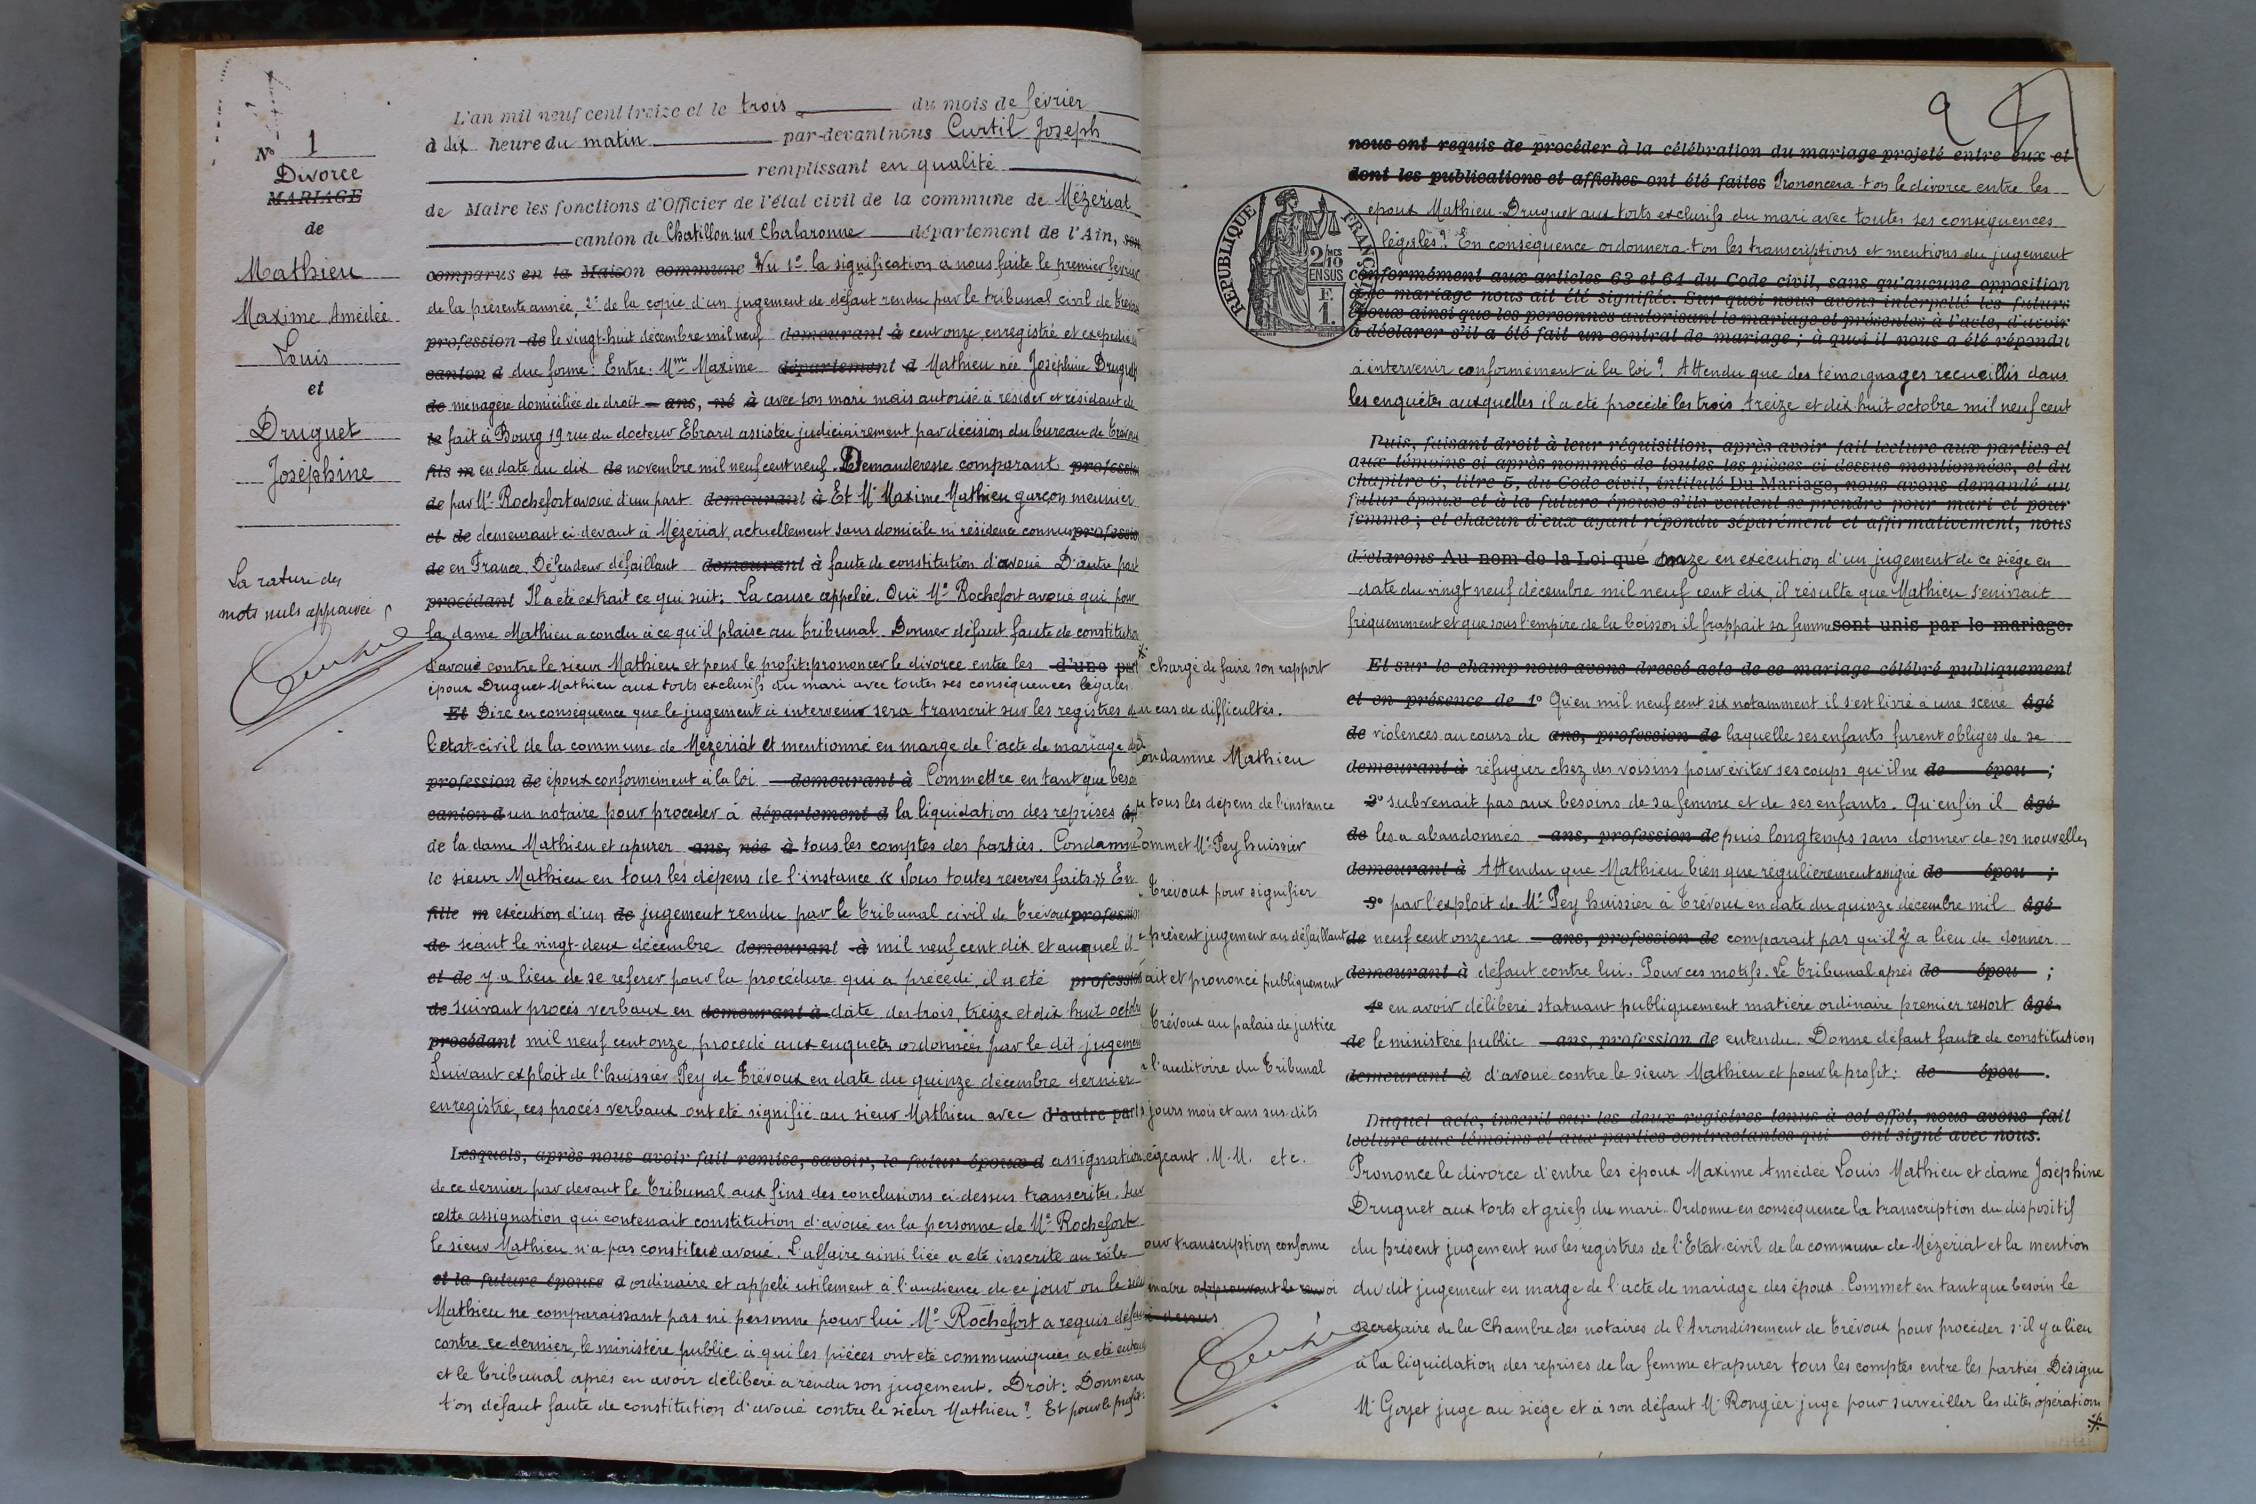 N° 1
Divorce
MARIAGE
de
Mathieu
Maxime Amédée
Louis
et
Druguet
Joséphine
La rature des
mots nuls approuvée
L'an mil neuf cent treize et le trois du mois de février
à dix heure du matin par-devant nous Curtil Joseph
remplissant en qualité
de Maire les fonctions d'Officier de l'état civil de la commune de Mézériat
canton de Chatillon sur Chalaronne département de l'Ain, son
comparus en la Maison commune Vu 1° la signification à nous faite le premier février
de la présente année, 2° de la copie d'un jugement de défaut rendu par le tribunal civil de Trévoux
profession de le vingt-huit décembre mil neuf demeurant à cent onze, enregistré et expédié en
canton d due forme: Entre: Mme Maxime département d Mathieu née Joséphine Druguet
de ménagère domiciliée de droit ans, né à avec son mari mais autorisé à résider et résidant de
le fait à Bourg 19 rue du docteur Ebrard assistée judiciairement par décision du bureau de Trévoux
fils m en date du dix de novembre mil neuf cent neuf. Demanderesse comparant profession
de par Me Rochefort avoué d'une part demeurant à Et Mr Maxime Mathieu garçon meunier
et de demeurant ci-devant à Mézériat, actuellement sans domicile ni résidence connus profession
de en France. Défendeur défaillant demeurant à faute de constitution d'avoué D'autre part
procédant Il a été extrait ce qui suit: La cause appelée. Oui Me Rochefort avoué qui pour
la dame Mathieu a conclu à ce qu'il plaise au Tribunal. Donner défaut faute de constitution
d'avoué contre le sieur Mathieu et pour le profit: prononcer le divorce entre les d'une part
époux Druguet Mathieu aux torts exclusifs du mari avec toutes ses conséquences légales
Et Dire en conséquence que le jugement à intervenir sera transcrit sur les registres de
l'état-civil de la commune de Mézériat et mentionné en marge de l'acte de mariage des
profession de époux conformément à la loi demeurant à Commettre en tant que besoin
canton d un notaire pour procéder à département d la liquidation des reprises
de la dame Mathieu et apurer ans, née à tous les comptes des parties. Condamner
le sieur Mathieu en tous les dépens de l'instance « Sous toutes reserves faits » En
fille m exécution d'un de jugement rendu par le Tribunal civil de Trévoux profession
de séant le vingt-deux décembre demeurant à mil neuf cent dix et auquel il
et de y a lieu de se referer pour la procédure qui a précédé, il a été profession
de suivant procès verbaux en demeurant à date des trois, treize et dix huit octobre
procédant mil neuf cent onze, procédé aux enquêtes ordonnées par le dit jugement
Suivant exploit de l'huissier Pey de Trévoux en date du quinze décembre dernier
enregistré, ces procès verbaux ont été signifié au sieur Mathieu avec d'autre part
Lesquels, après nous avoir fait remise, savoir, le futur époux d assignation
de ce dernier par devant le Tribunal aux fins des conclusions ci-dessus transcrites. Sur
cette assignation qui contenait constitution d'avoué en la personne de Me Rochefort
le sieur Mathieu n'a pas constitué avoué. L'affaire ainsi liée a été inscrite au rôle
et la future épouse d ordinaire et appelé utilement à l'audience de ce jour ou le sieur
Mathieu ne comparaissant pas ni personne pour lui Me Rochefort a requis défaut
contre ce dernier, le ministère public à qui les pièces ont été communiquées a été entendu
et le Tribunal après en avoir délibéré a rendu son jugement. Droit: Donnera
t'on défaut faute de constitution d'avoué contre le sieur Mathieu? Et pour le profit:
RÉPUBLIQUE FRANÇAISE
2/10
EN SUS
F.
1.
nous ont requis de procéder à la célébration du mariage projeté entre eux et
dont les publications et affiches ont été faites Prononcera-t-on le divorce entre les
époux Mathieu-Druguet aux torts exclusifs du mari avec toutes ses conséquences
légales? En conséquence ordonnera-t-on les transcriptions et mentions du jugement
conformément aux articles 63 et 64 du Code civil, sans qu'aucune opposition
à ce mariage nous ait été signifiée. Sur quoi nous avons interpellé les futurs
époux ainsi que les personnes autorisant le mariage et présentes à l'acte, d'avoir
à déclarer s'il a été fait un contrat de mariage; à quoi il nous a été répondu
à intervenir conformément à la loi? Attendu que des témoignages recueillis dans
les enquêtes auxquelles il a été procédé les trois treize et dix-huit octobre mil neuf cent
Puis, faisant droit à leur réquisition, après avoir fait lecture aux parties et
aux témoins ci après nommés de toutes les pièces ci dessus mentionnées, et du
chapitre 6, titre 5, du Code civil, intitulé Du Mariage, nous avons demandé au
futur époux et à la future épouse s'ils veulent se prendre pour mari et pour
femme; et chacun d'eux ayant répondu séparément et affirmativement, nous
déclarons Au nom de la Loi que onze en exécution d'un jugement de ce siège en
date du vingt neuf décembre mil neuf cent dix, il résulte que Mathieu s'enivrait
fréquemment et que sous l'empire de la boisson il frappait sa femme sont unis par le mariage.
Et sur le champ nous avons dressé acte de ce mariage célébré publiquement
et en présence de 1° Qu'en mil neuf cent six notamment il s'est livré à une scène âgé
de violences au cours de ans, profession de laquelle ses enfants furent obligés de se
demeurant à réfugier chez des voisins pour éviter ses coups qu'il ne de épou ;
2° subvenait pas aux besoins de sa femme et de ses enfants. Qu'enfin il âgé
de les a abandonnés ans, profession de puis longtemps sans donner de ses nouvelles
demeurant à Attendu que Mathieu bien que régulièrement assigné de épou ;
3° par l'exploit de Me Pey huissier à Trévoux en date du quinze décembre mil âgé
de neuf cent onze ne ans, profession de comparait pas qu'il y a lieu de donner
demeurant à défaut contre lui. Pour ces motifs. Le Tribunal après de épou ;
4° en avoir délibéré statuant publiquement matière ordinaire premier ressort âgé
de le ministère public ans, profession de entendu. Donne défaut faute de constitution
demeurant à d'avoué contre le sieur Mathieu et pour le profit: de épou .
Duquel acte, inscrit sur les deux registres tenus à cet effet, nous avons fait
lecture aux témoins et aux parties contractantes qui ont signé avec nous.
Prononce le divorce d'entre les époux Maxime Amédée Louis Mathieu et dame Joséphine
Druguet aux torts et griefs du mari. Ordonne en conséquence la transcription du dispositif
du présent jugement sur les registres de l'Etat-civil de la commune de Mézériat et la mention
du dit jugement en marge de l'acte de mariage des époux. Commet en tant que besoin le
secrétaire de la Chambre des notaires de l'Arrondissement de Trévoux pour procéder s'il y a lieu
à la liquidation des reprises de la femme et apurer tous les comptes entre les parties Désigne
Mr Goyet juge au siège et à son défaut Mr Rongier juge pour surveiller les dites opérations
chargé de faire son rapport
au cas de difficultés.
Condamne Mathieu
tous les dépens de l'instance
Commet Me Pey huissier
Trévoux pour signifier
présent jugement au défaillant
fait et prononcé publiquement
Trévoux au palais de justice
l'auditoire du Tribunal
jours mois et ans sus-dits
siégeant. M.M. etc.
pour transcription conforme
maire approuvant le renvoi
ci-dessus